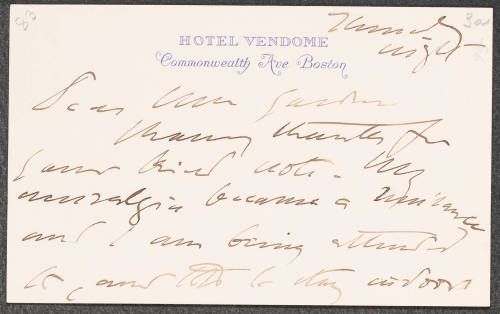 HOTEL VENDOME
Commonwealth Ave Boston
night
Dear Mrs Gardner
Many thanks for
your kind note. My
neuralgia became a nuisance
and I am being attended
to, and to stay indoors